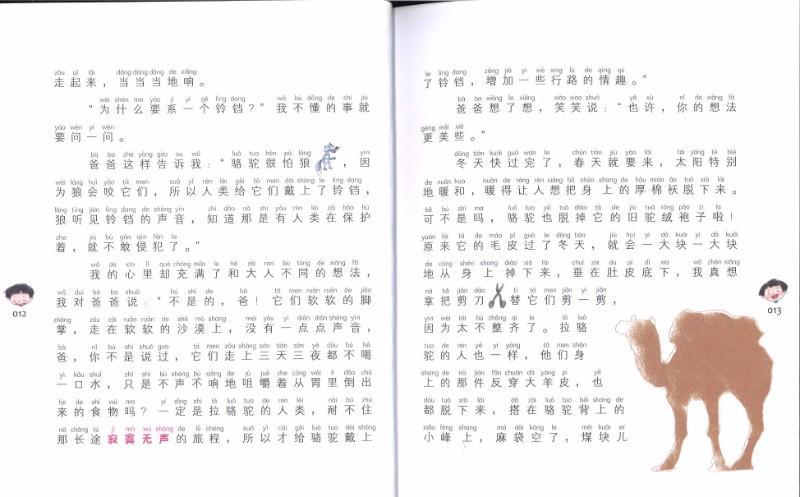 走起来，当当当地响。
“为什么要系一个铃铛？”我不懂的事就
要问一问。
爸爸这样告诉我：“骆驼很怕狼，因
为狼会咬它们，所以人类给它们戴上了铃铛，
狼听见铃铛的声音，知道那是有人类在保护
着，就不敢侵犯了。”
我的心里却充满了和大人不同的想法，
我对爸爸说：“不是的，爸！它们软软的脚
掌，走在软软的沙漠上，没有一点点声音，
爸，你不是说过，它们走上三天三夜都不喝
一口水，只是不声不响地咀嚼着从胃里倒出
来的食物吗？一定是拉骆驼的人类，耐不住
那长途寂寞无声的旅程，所以才给骆驼戴上
012
了铃铛，增加一些行路的情趣。”
爸爸想了想，笑笑说：“也许，你的想法
更美些。”
冬天快过完了，春天就要来，太阳特别
地暖和，暖得让人想把身上的厚棉袄脱下来。
可不是吗，骆驼也脱掉它的旧驼绒袍子啦！
原来它的毛皮过了冬天，就会一大块一大块
地从身上掉下来，垂在肚皮底下，我真想
拿把剪刀替它们剪一剪，
因为太不整齐了。拉骆
驼的人也一样，他们身
上的那件反穿大羊皮，也
都脱下来，搭在骆驼背上的
小峰上，麻袋空了，煤块儿
013